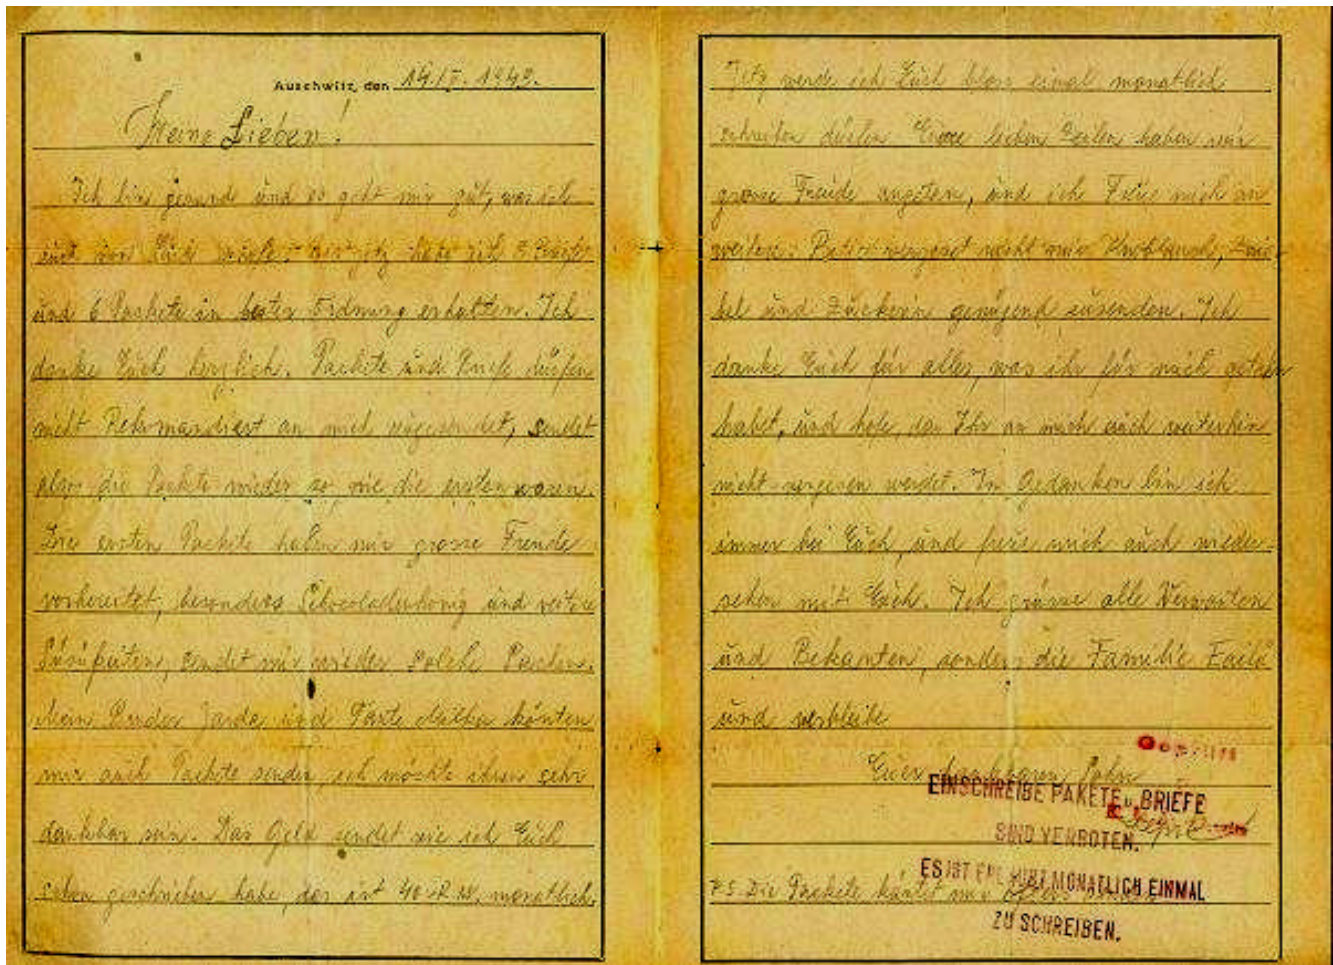 Auschwitz, den 14/I. 1943.
Meine Lieben!
Ich bin gesund und es geht mir gut, was ich
auch von Euch . bis jetz habe ich Briefe
und 6 Packete in bester Ordnung erhalten. Ich
danke Euch herzlich. Packete und Briefe dürfen
nicht Rekomandiert an mich zugesendet, sendet
also die Packete wieder so wie die ersten waren.
Die ersten Packete haben mir grosse Freude
vorbereitet, besonders und weitere
sendet mir wieder solch
Mein Bruder Jarda und Tante könten
mir auch Packete senden, ich möchte ihnen sehr
dankbar sein. Das Geld sendet wie ich Euch
schon geschrieben habe, das ist 40 RM. monatlich.
Jetz werde ich Euch blos einmal monatlich
schreiben dürfen Euere lieben Zeilen haben mir
grosse Freude angeten, und ich Freue mich an
weitere. Bitte vergest nicht mir Knoblauch, Zwie-
bel und Zuckerin genügend zusenden. Ich
danke Euch für alles, was ihr für mich getan
habet, und hofe, das Ihr an mich auch weiterhin
nicht vergesen werdet. In Gedanken bin ich
immer bei Euch, und freue mich auch wieder-
sehen mit Euch. Ich grüsse alle Verwanten
und Bekanten, sonders die Familie
und verbleibe
Euer dankbaren Sohn
Geprüft
EINSCHREIBE PAKETE u. BRIEFE
SIND VERBOTEN.
ES IST ERLAUBT MONATLICH EINMAL
ZU SCHREIBEN.
P.S. Die Packete köntet mir öfters senden